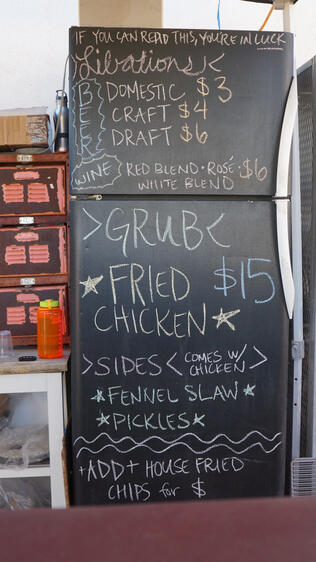 IF YOU CAN READ THIS, YOU'RE IN LUCK
Libations <
BEER
DOMESTIC $3
CRAFT $4
DRAFT $6
WINE RED BLEND • ROSÉ • WHITE BLEND $6
>GRUB<
FRIED CHICKEN $15
>SIDES< COMES W/ CHICKEN >
FENNEL SLAW
PICKLES
+ADD+ HOUSE FRIED
CHIPS for $